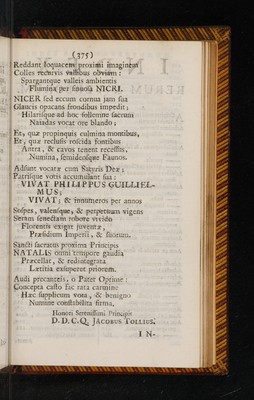 (375)
Reddant loquacem proximi imaginem
Colles recurvis vallibus obviam:
Spargantque valleis ambientis
Flumina per sinuosa NICRI.
NICER sed eccum cornua jam sua
Glaucis opacans frondibus impedit;
Hilarisque ad hoc sollemne sacrum
Naiadas vocat ore blando;
Et, quæ propinquis culmina montibus,
Et, quæ reclusis roscida fontibus
Antra, & cavos tenent recessus,
Numina, semideosque Faunos.
Adsunt vocatæ cum Satyris Deæ;
Patriisque votis accumulant sua:
VIVAT PHILIPPUS GUILLIEL-
MUS;
VIVAT; & innumeros per annos
Sospes, valensque, & perpetuum vigens
Serum senectam robore vivido
Florentis exigat juventæ,
Præsidium Imperii, & suorum.
Sancti sacratus proxima Principis
NATALIS omni tempore gaudia
Præcellat, & redintegrata
Lætitia exsuperet priorem.
Audi precanteis, o Pater Optime:
Concepta casto fac rata carmine
Hæc supplicum vota, & benigno
Numine constabilita firma.
Honori Serenissimi Principis
D. D. C. Q. JACOBUS TOLLIUS.
I N-